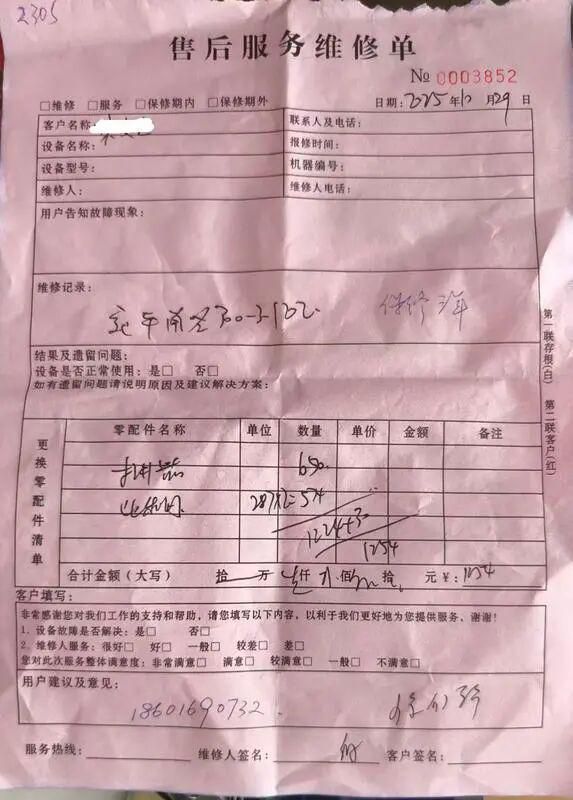 2305
售后服务维修单
№ 0003852
□维修 □服务 □保修期内 □保修期外
日期：2025年10月29日
客户名称：
联系人及电话：
设备名称：
报修时间：
设备型号：
机器编号：
维修人：
维修人电话：
用户告知故障现象：
维修记录：
保修
结果及遗留问题：
设备是否正常使用：是□ 否□
如有遗留问题请说明原因及建议解决方案：
第一联存根(白) 第二联客户(红)
更换零配件清单
零配件名称 单位 数量 单价 金额 备注
650
287X2=574
1224+30
1254
合计金额（大写） 拾 万 仟 佰 拾 元￥：1254
客户填写：
非常感谢您对我们工作的支持和帮助，请您填写以下内容，以利于我们更好地为您提供服务、谢谢！
1．设备故障是否解决：是□ 否□
2．维修人服务：很好□ 好□ 一般□ 较差□ 差□
您对此次服务整体满意度：非常满意□ 满意□ 较满意□ 一般□ 不满意□
用户建议及意见：
18601690732
服务热线： 维修人签名： 客户签名：